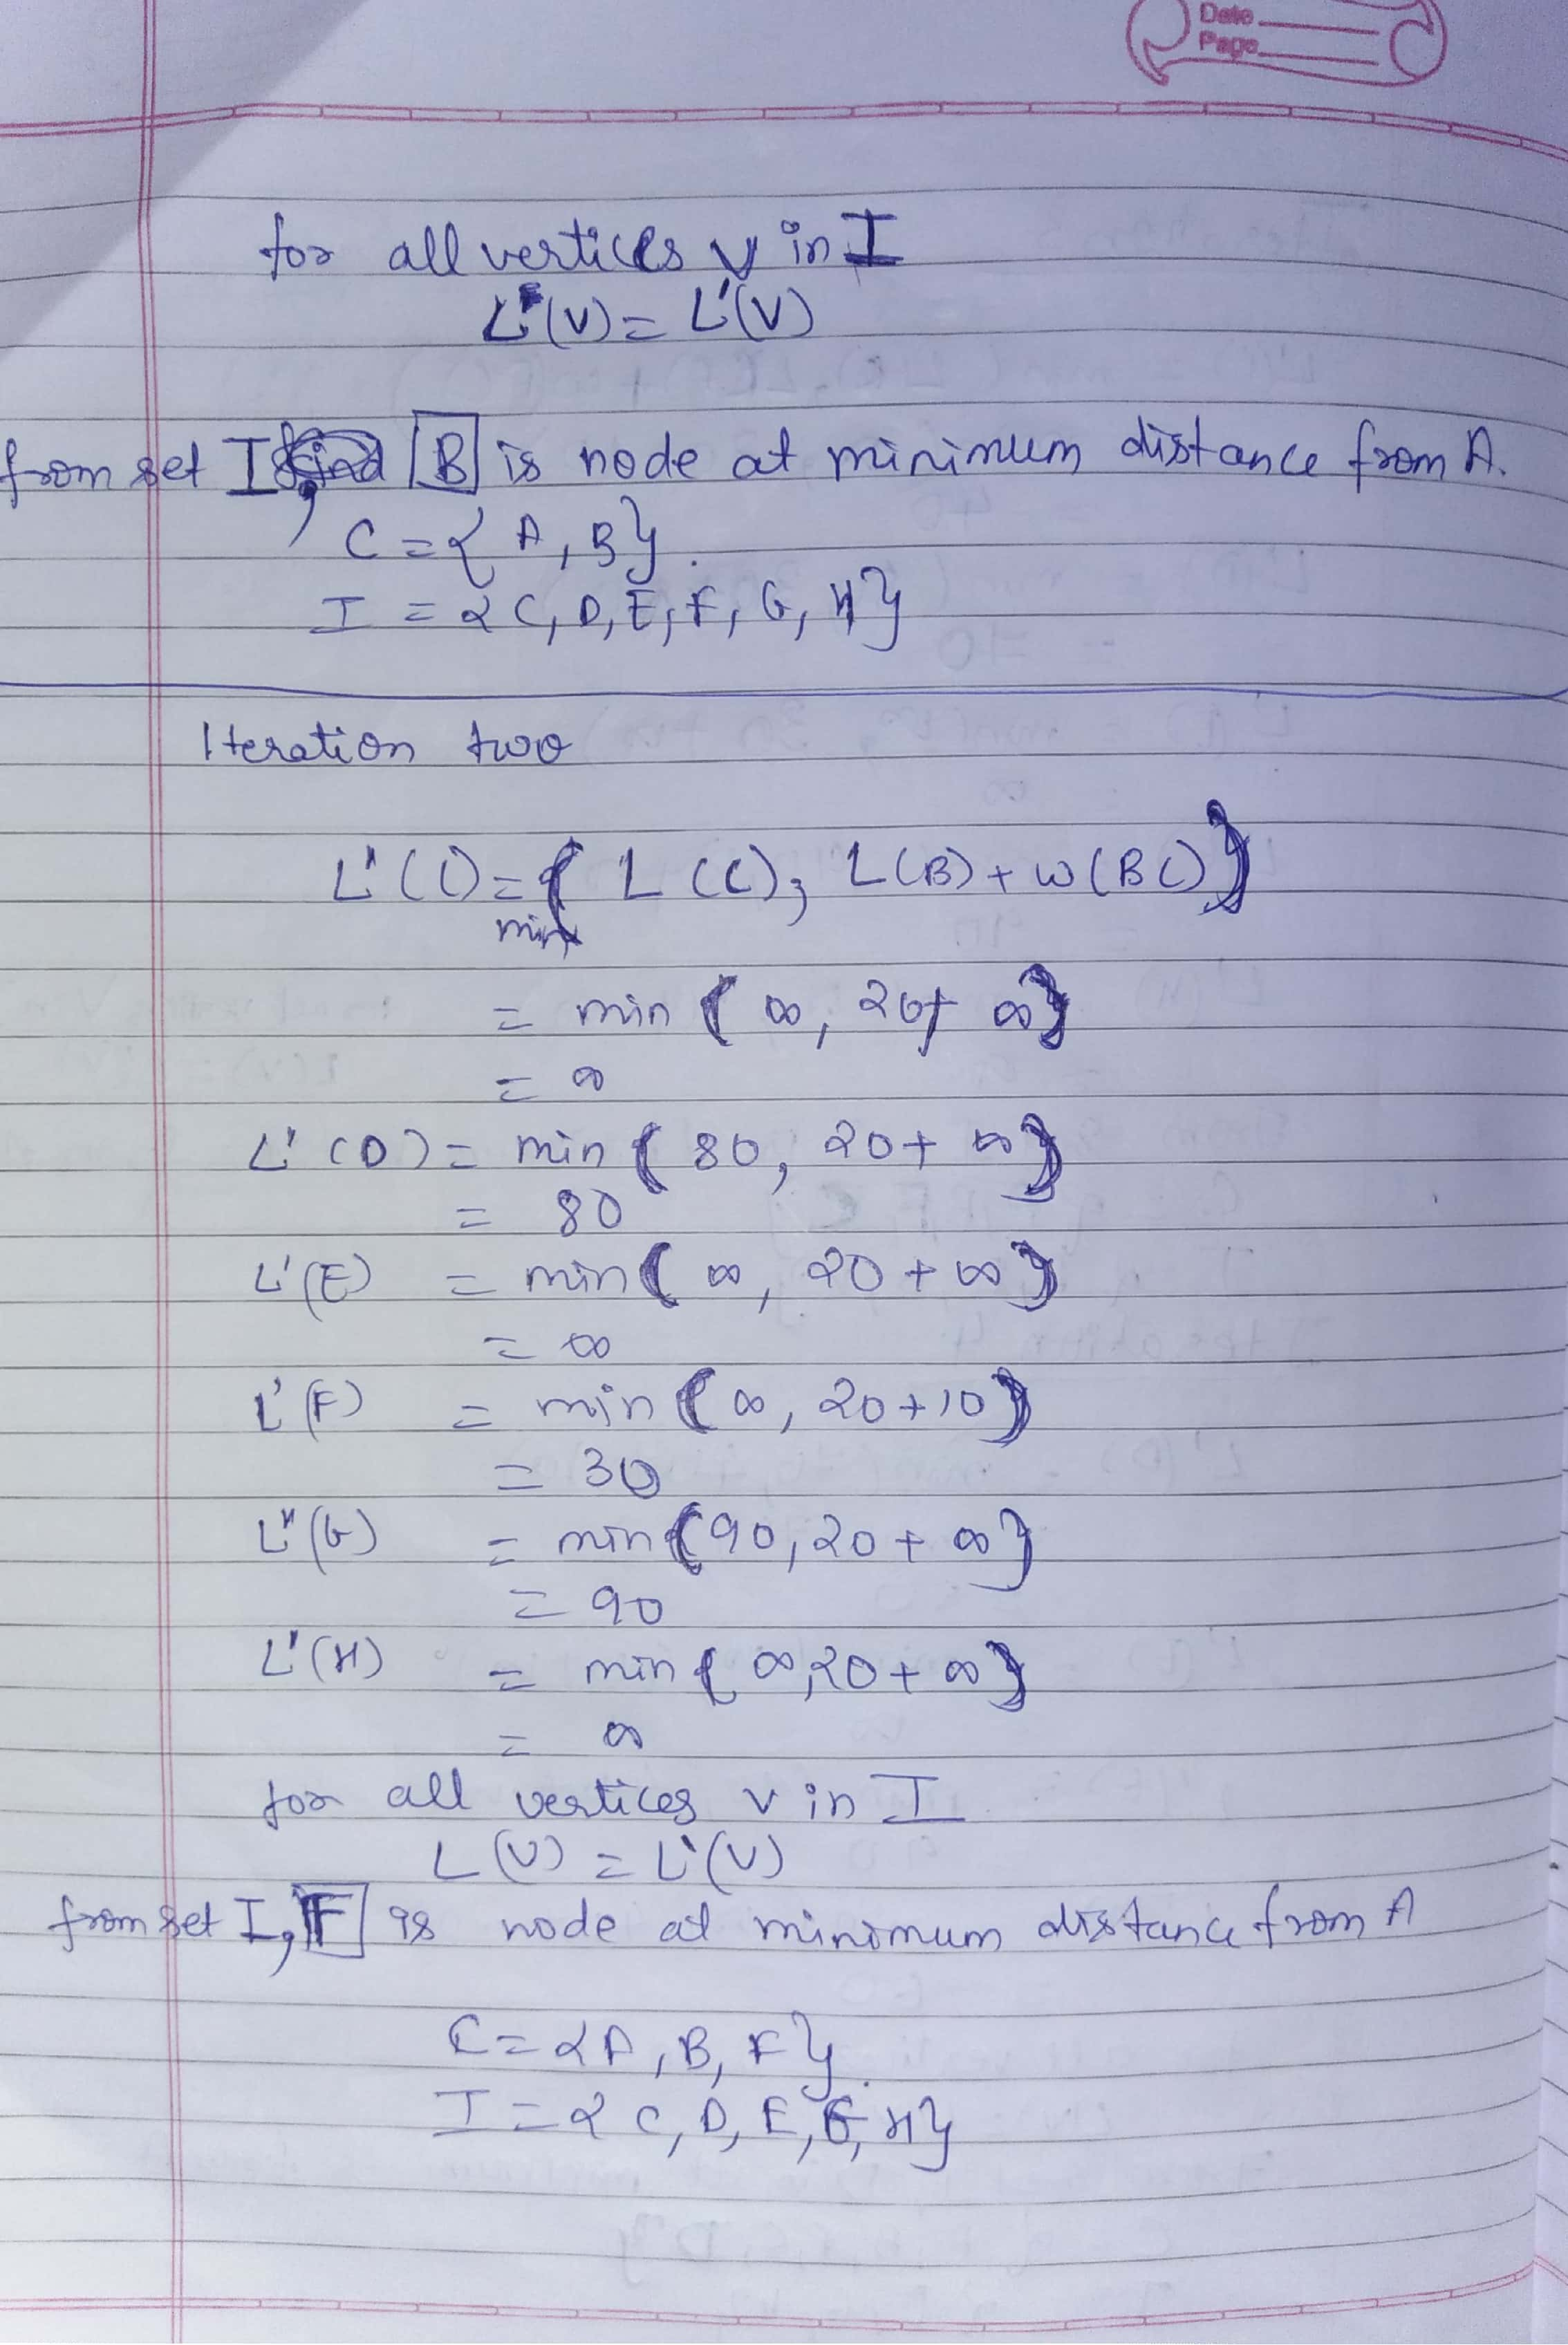 Date
Page
for all vertices v in I
L'(V) = L'(V)
from set I, B is node at minimum distance from A.
C = { A, B }.
I = { C, D, E, F, G, H }
Iteration two
L'(C) = min { L(C), L(B) + w(BC) }
= min { ∞, 20 + ∞ }
= ∞
L'(D) = min { 80, 20 + ∞ }
= 80
L'(E) = min { ∞, 20 + ∞ }
= ∞
L'(F) = min { ∞, 20 + 10 }
= 30
L'(G) = min { 90, 20 + ∞ }
= 90
L'(H) = min { ∞, 20 + ∞ }
= ∞
for all vertices v in I
L(V) = L'(V)
from set I, F is node at minimum distance from A
C = { A, B, F }.
I = { C, D, E, G, H }